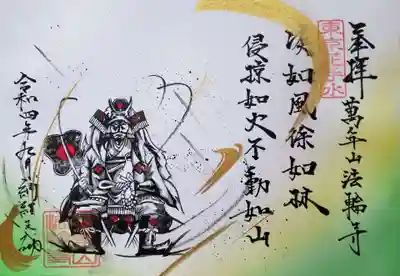 奉拝
萬年山法輪寺
疾如風徐如林
侵掠如火不動如山
令和四年九月